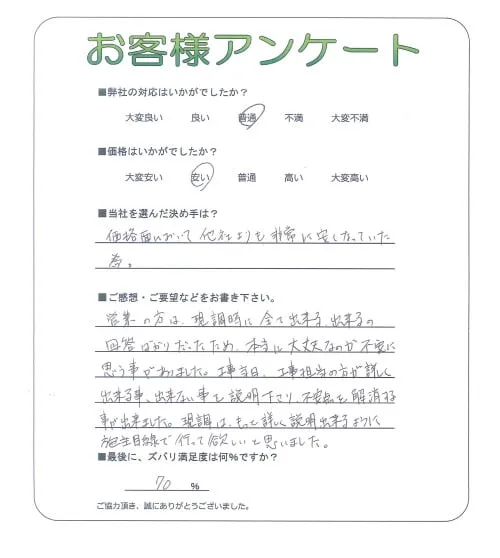 お客様アンケート
■弊社の対応はいかがでしたか?
大変良い 良い 普通 不満 大変不満
■価格はいかがでしたか?
大変安い 安い 普通 高い 大変高い
■当社を選んだ決め手は?
価格面において他社よりも非常に安くなっていた
為。
■ご感想・ご要望などをお書き下さい。
営業の方は、現調時に全て出来る、出来るの
回答ばかりだったため、本当に大丈夫なのか不安に
思う事がありました。工事当日、工事担当の方が詳しく
出来る事、出来ない事を説明下さり、不安点を解消する
事が出来ました。現調は、もっと詳しく説明出来るように
施主目線で行って欲しいと思いました。
■最後に、ズバリ満足度は何%ですか?
70 %
ご協力頂き、誠にありがとうございました。